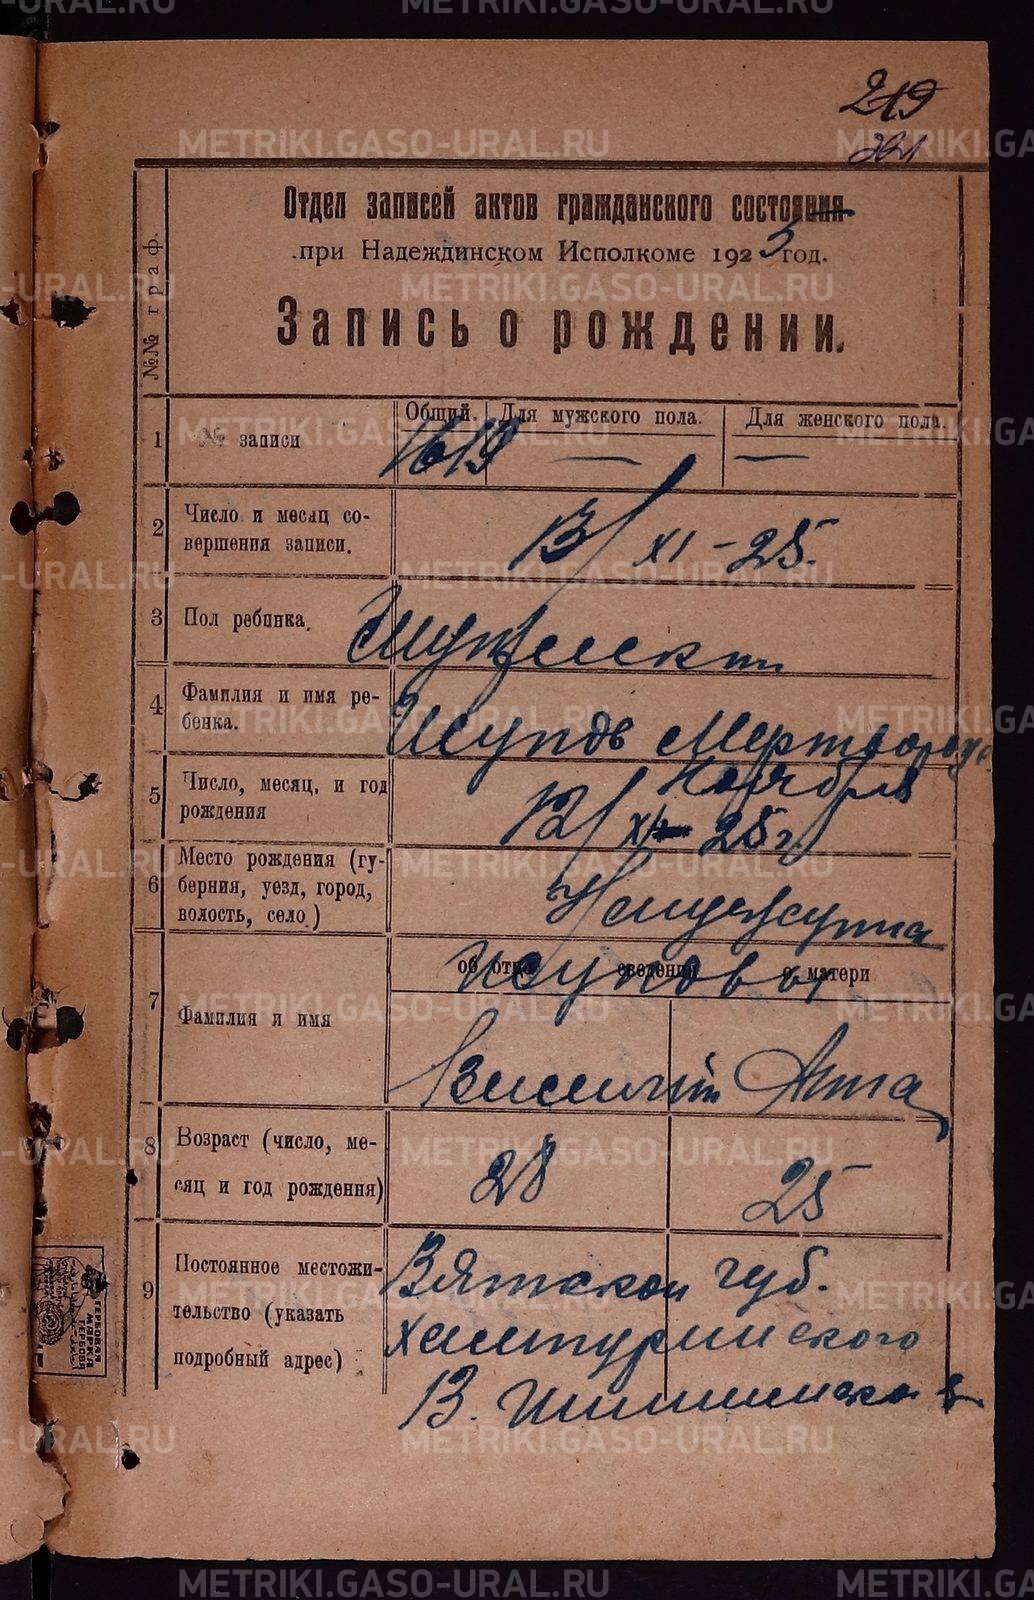 219
221
Отдел записей актов гражданского состояния
при Надеждинском Исполкоме 1925 год.
Запись о рождении.
№№ граф.
Общий. Для мужского пола. Для женского пола.
1 № записи 1619 — —
2 Число и месяц со-
вершения записи. 13/XI-25.
3 Пол ребенка. Мужеск
4 Фамилия и имя ре-
бенка.
5 Число, месяц, и год
рождения 12/ Ноября
XI 25 г.
6 Место рождения (гу-
берния, уезд, город,
волость, село.)
об отце сведения о матери
7 Фамилия и имя
Василий Анна
8 Возраст (число, ме-
сяц и год рождения) 28 25
9 Постоянное местожи-
тельство (указать
подробный адрес) Вятской губ.
ГЕРБОВАЯ
МАРКА
METRIKI.GASO-URAL.RU